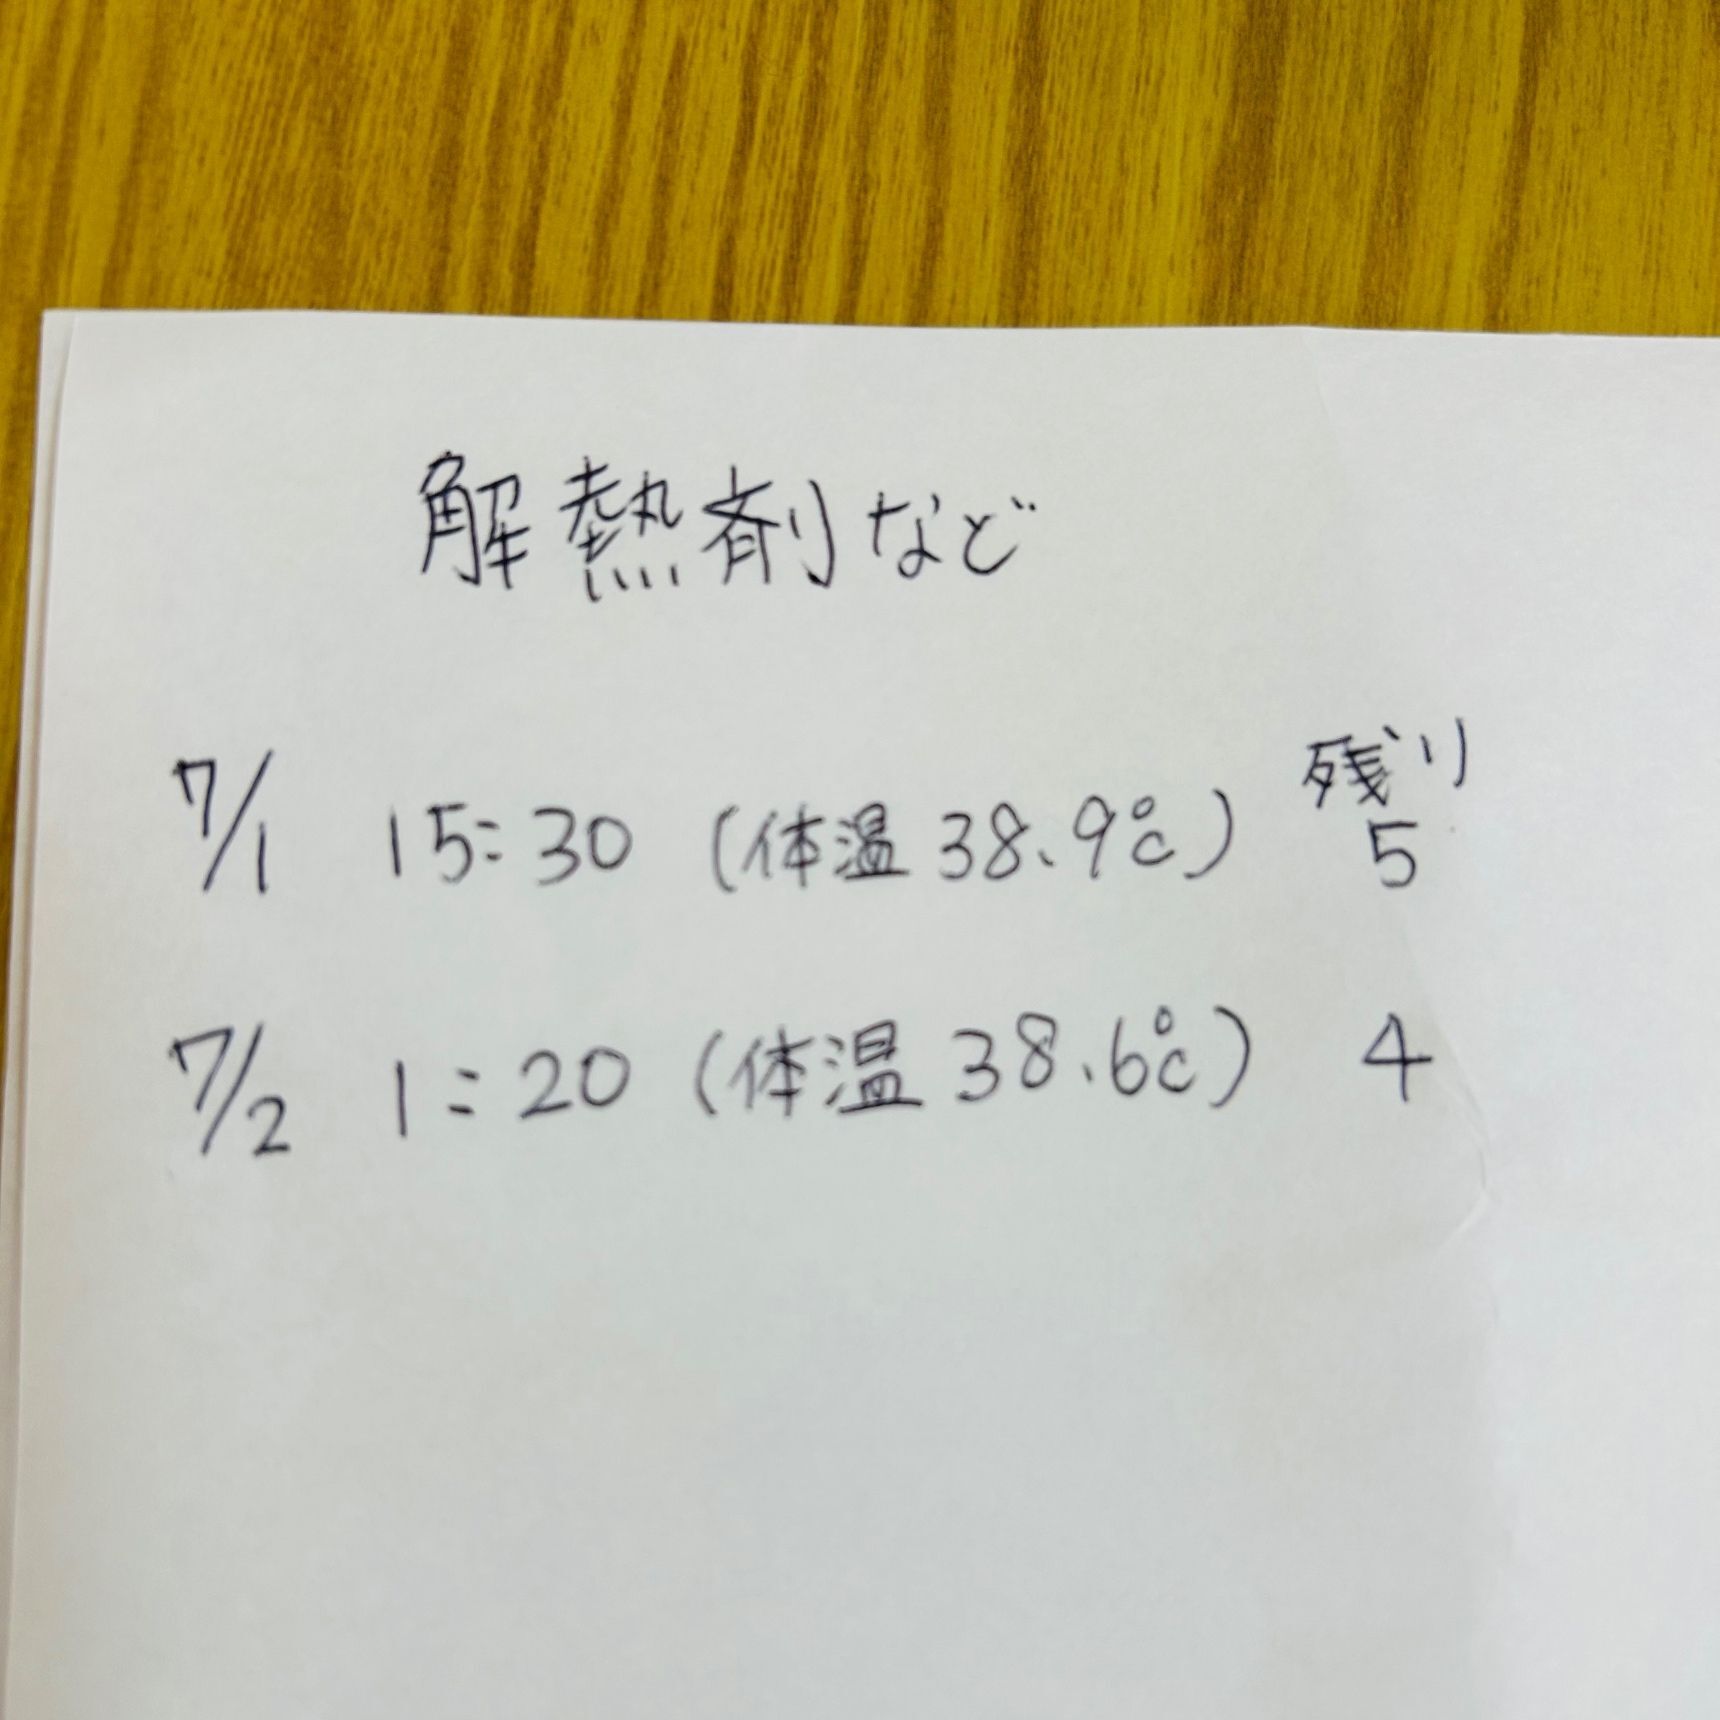 解熱剤など
7/1 15:30 (体温 38.9℃) 残り 5
7/2 1:20 (体温 38.6℃) 4